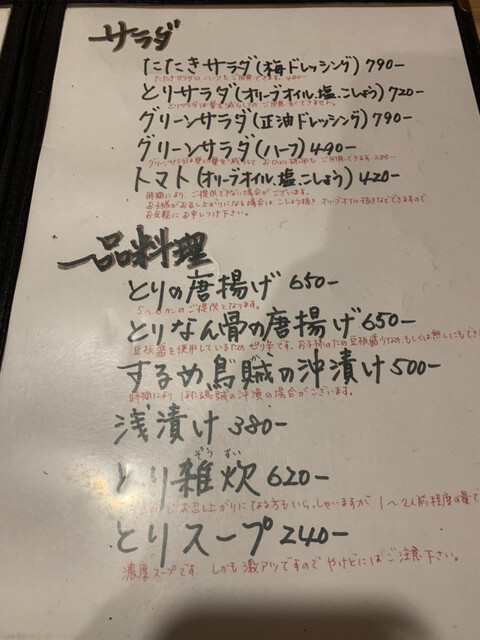 サラダ
たたきサラダ(梅ドレッシング) 790-
たたきサラダの ハーフもご用意できます。
とりサラダ(オリーブオイル、塩、こしょう) 720-
グリーンサラダ(正油ドレッシング) 790-
グリーンサラダ(ハーフ) 490-
トマト(オリーブオイル、塩、こしょう) 420-
時期により、ご提供できない場合がございます。
お子様がお召し上がりになる場合は、こしょう抜き、オリーブオイル抜きなどできますので
お気軽に お申しつけ下さい。
一品料理
とりの唐揚げ 650-
5〜6カンのご提供となります。
とりなん骨の唐揚げ 650-
豆板醤を使用しているため ピリ辛です。
するめ烏賊の沖漬け 500-
時期により ほたる烏賊の沖漬の場合がございます。
浅漬け 380-
ぞう すい
とり雑炊 620-
お召し上がりになる方もいらっしゃいますが 1〜2人前程度の量で
とりスープ 240-
濃厚スープです。しかも激アツですので やけどにはご注意下さい。